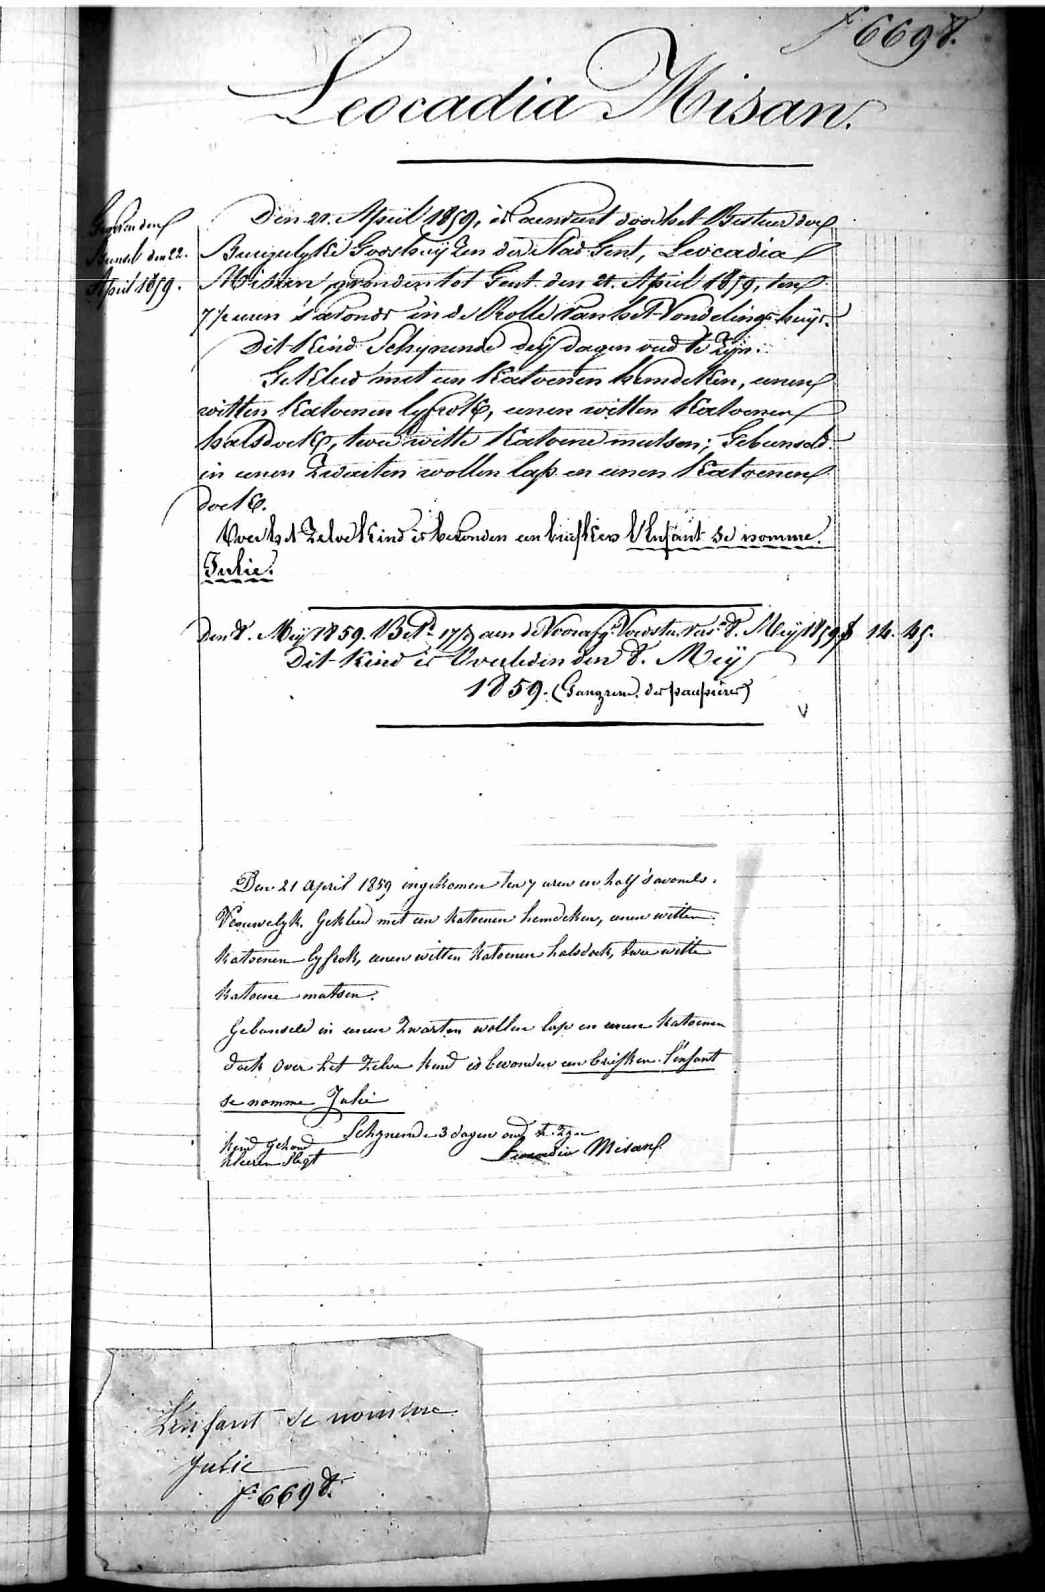 fº 6698.
Leocadia Misan.
Gezonden
Bunsel den 22.
April 1859.
Den 21. April 1859, is aenveert door het Bestuer der
Burgelyke Godshuyzen der Stad Gent, Leocadia
Misan, gevonden tot Gent den 21. April 1859, ten
7½ uren 's avonds in de Rolle van het Vondelingshuys.
Dit kind Schynende dry dagen oud te zyn.
Gekleed met een Katoenen hemdeken, eenen
witten Katoenen lyfrok, eenen witten Katoenen
halsdoek, twee witte Katoene mutsen; Gebunseld
in eenen Zwarten wollen lap en eenen Katoenen
doek.
Over het Zelve Kind is bevonden een briefken l'Enfant se nomme
Julie.
den 8. Mey 1859. 17/ aen de Voedster 8. Mey 1859 f 14. 45.
Dit Kind is Overleden den 8. Mey
1859. (Gangrene des paupières)
Den 21 April 1859 ingekomen ten 7 uren en half 's avonds.
Vrouwelyk. Gekleed met een katoenen hemdeken, eenen witten
katoenen lyfrok, eenen witten katoenen halsdoek, twee witte
katoene mutsen.
Gebunseld in eenen Zwarten wollen lap en eenen katoenen
doek over het Zelve kind is bevonden een briefken l'enfant
se nomme Julie
Schynende 3 dagen oud te Zyn
Kind gezond
kleeren Slegt
Leocadia Misan
L'enfant se nomme
Julie
fº 6698.